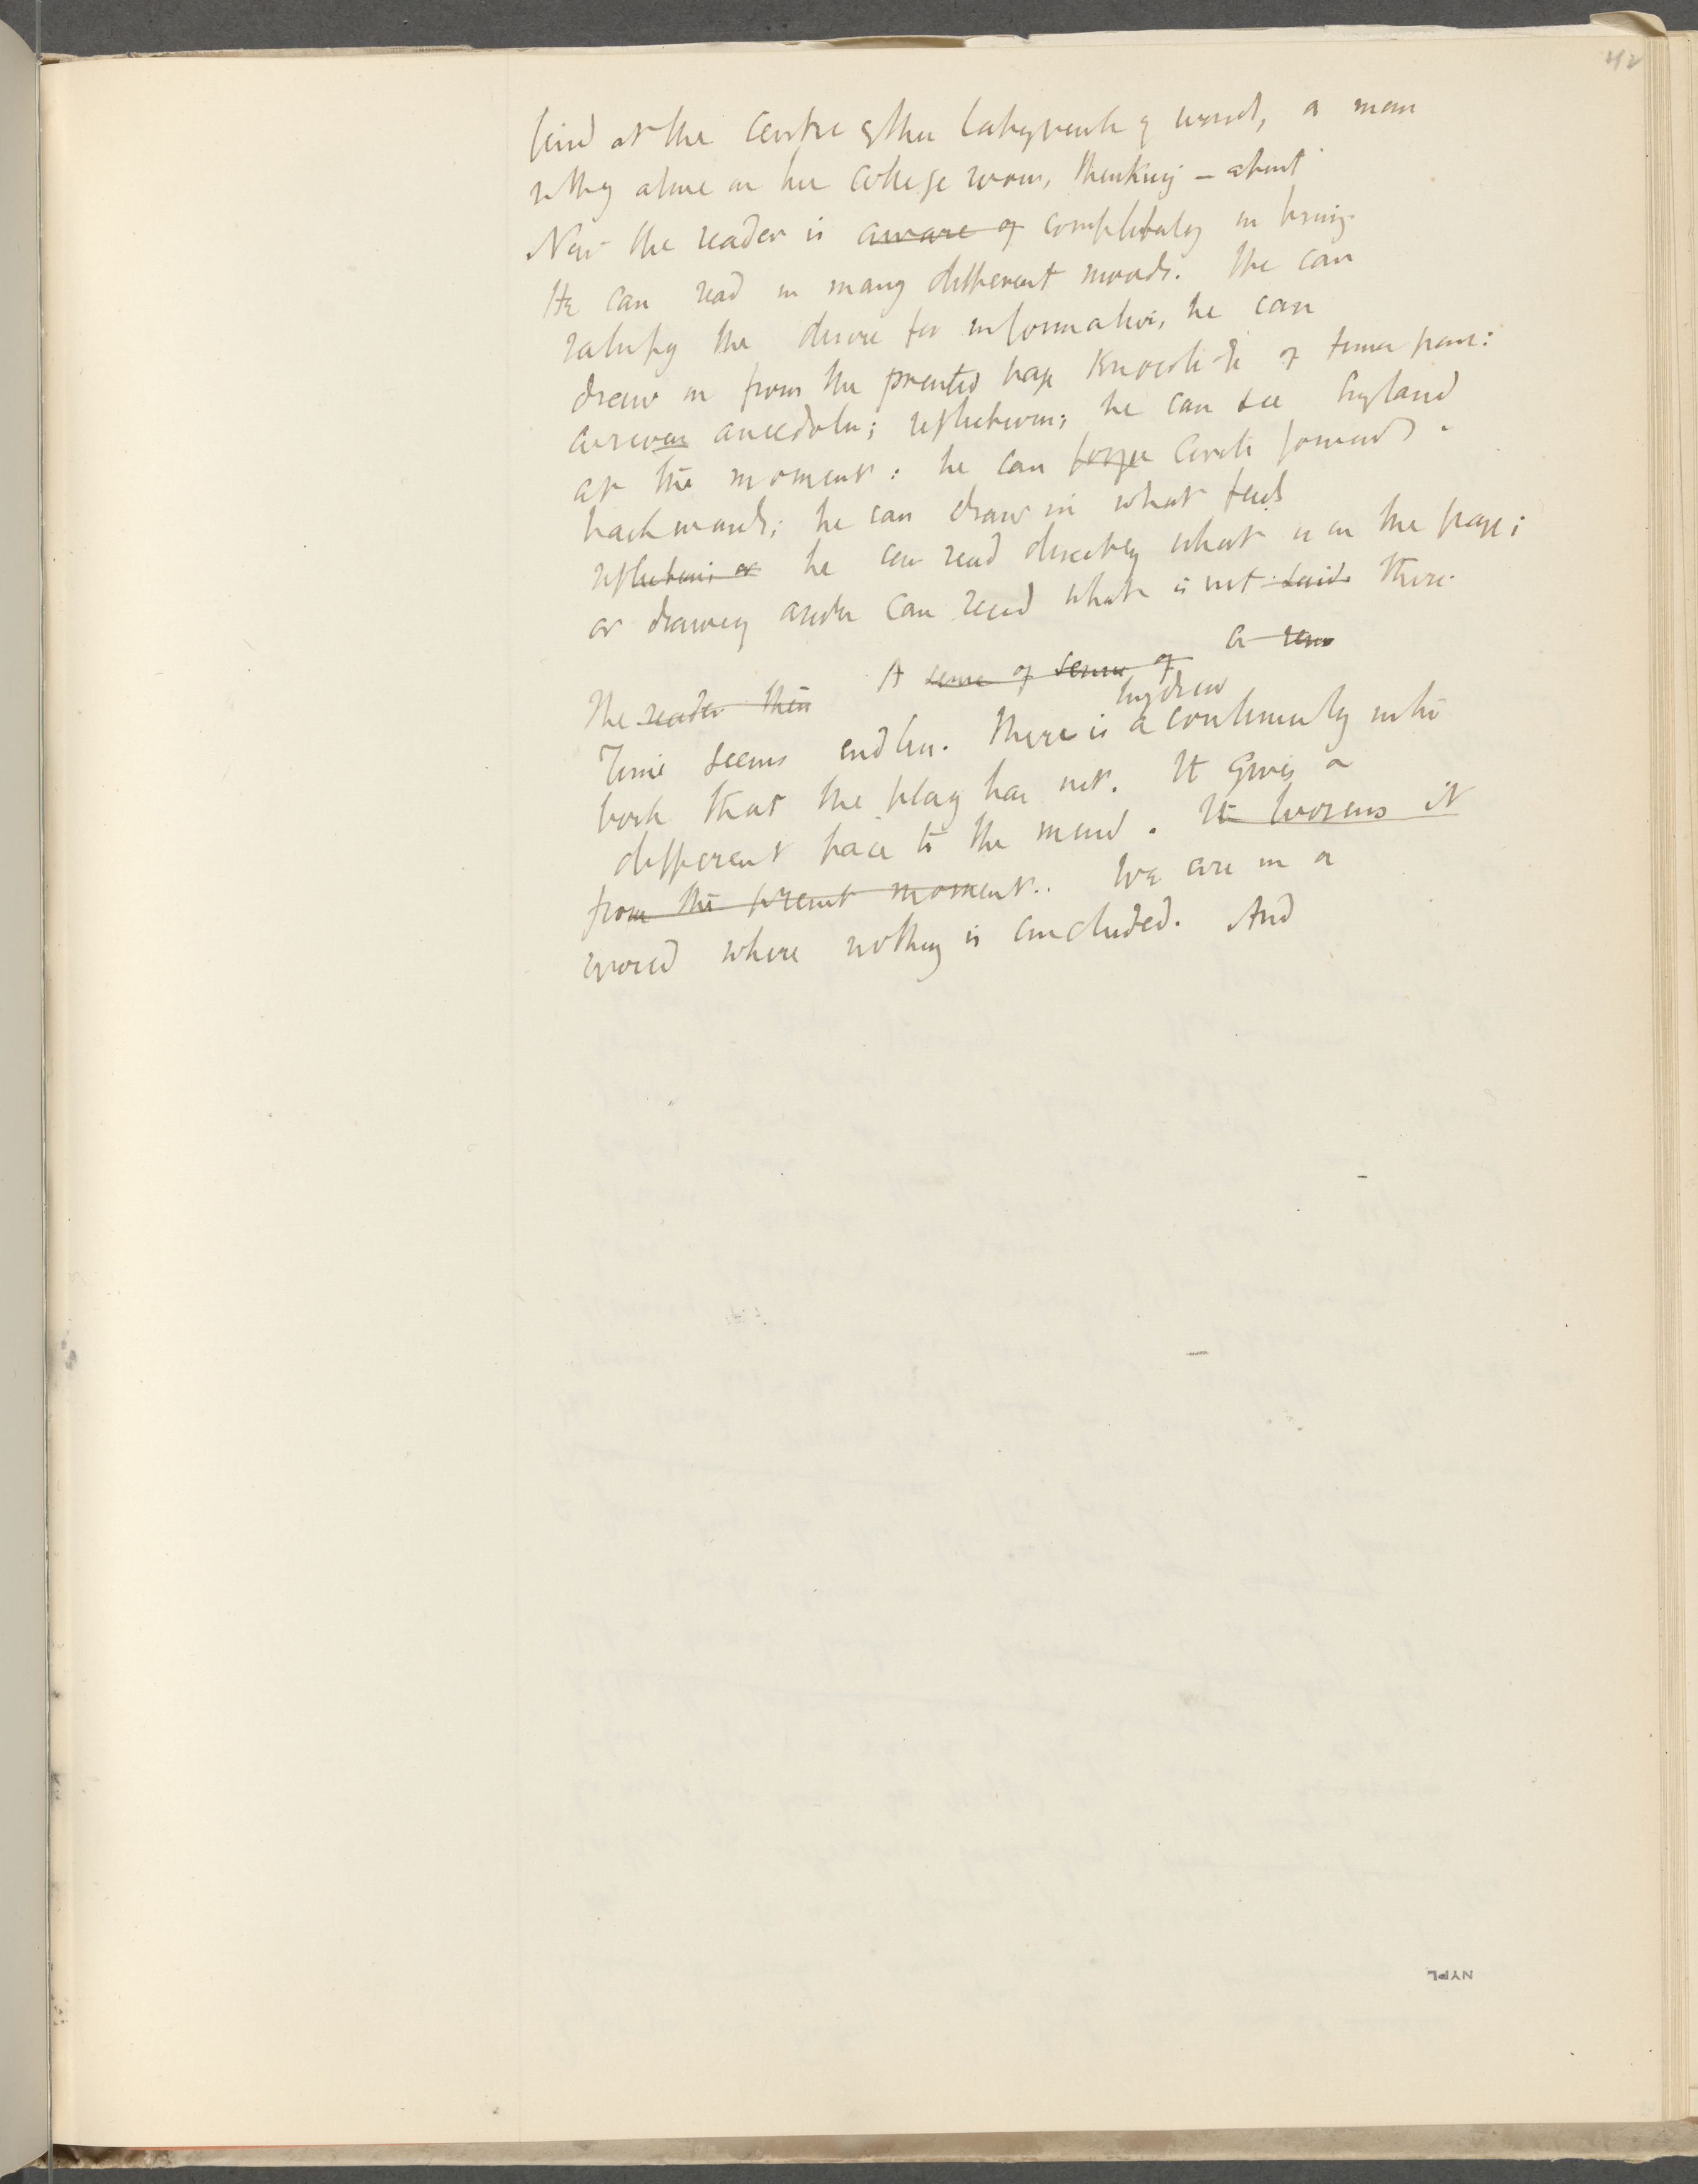 42
find at the centre of this labyrinth of words, a man
sitting alone in his college room, thinking – about
Now the reader is aware of completely in being.
He can read in many different moods. He can
satisfy the desire for information, he can
draw in from the printed page of time past:
anecdotes; reflections; he can see England
at the moment: he can forge circle forward.
backwards; he can draw in what feeds
reflection; or he can read directly what is on the page;
or drawing aside can read what is not said there.
The reader then A sense of sense of a
Time seems endless. There is a continuity in the
book that the play has not. It gives a
different pace to the mind. It loosens it
from the present moment.. We are in a
world where nothing is concluded. And
NYPL